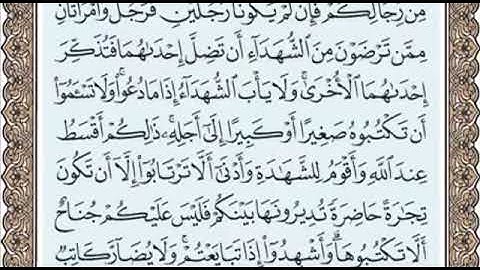 مِن رِّجَالِكُمْ فَإِن لَّمْ يَكُونَا رَجُلَيْنِ فَرَجُلٌ وَامْرَأَتَانِ
مِمَّن تَرْضَوْنَ مِنَ ٱلشُّهَدَآءِ أَن تَضِلَّ إِحْدَىٰهُمَا فَتُذَكِّرَ
إِحْدَىٰهُمَا ٱلْأُخْرَىٰ ۚ وَلَا يَأْبَ ٱلشُّهَدَآءُ إِذَا مَا دُعُوا۟ ۚ وَلَا تَسْـَٔمُوٓا۟
أَن تَكْتُبُوهُ صَغِيرًا أَوْ كَبِيرًا إِلَىٰٓ أَجَلِهِۦ ۚ ذَٰلِكُمْ أَقْسَطُ
عِندَ ٱللَّهِ وَأَقْوَمُ لِلشَّهَٰدَةِ وَأَدْنَىٰٓ أَلَّا تَرْتَابُوٓا۟ ۖ إِلَّآ أَن تَكُونَ
تِجَٰرَةً حَاضِرَةً تُدِيرُونَهَا بَيْنَكُمْ فَلَيْسَ عَلَيْكُمْ جُنَاحٌ
أَلَّا تَكْتُبُوهَا ۗ وَأَشْهِدُوٓا۟ إِذَا تَبَايَعْتُمْ ۚ وَلَا يُضَآرَّ كَاتِبٌ